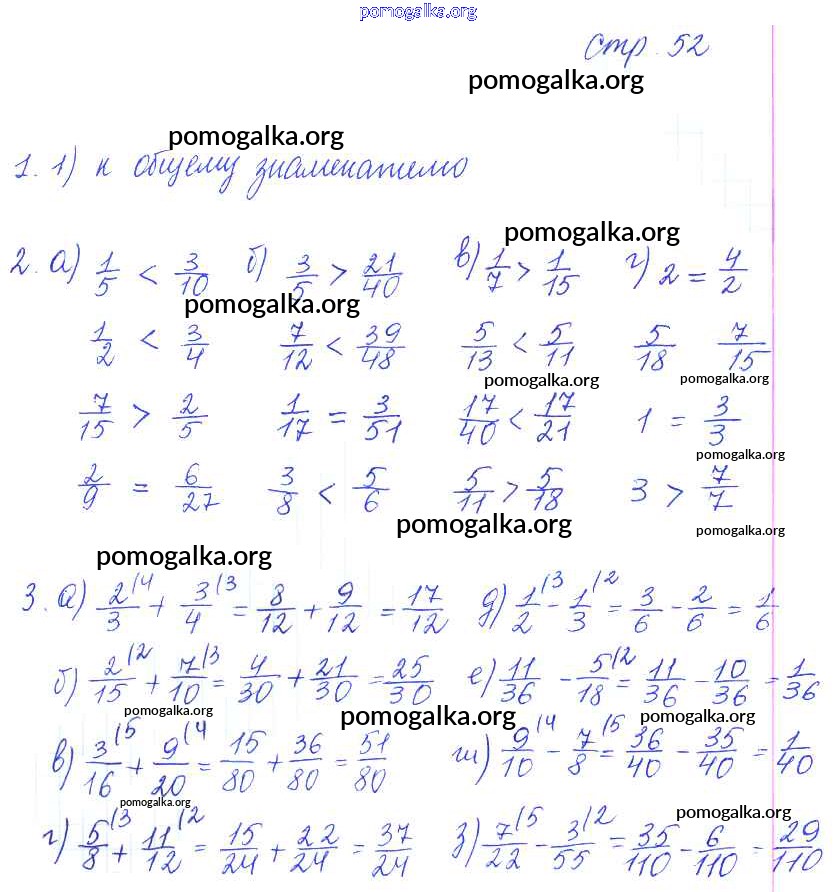 pomogalka.org
Стр. 52
pomogalka.org
pomogalka.org
1. 1) к общему знаменателю
pomogalka.org
2. а) 1/5 < 3/10 б) 3/5 > 21/40 в) 1/7 > 1/15 г) 2 = 4/2
pomogalka.org
1/2 < 3/4 7/12 < 39/48 5/13 < 5/11 5/18 7/15
pomogalka.org pomogalka.org
7/15 > 2/5 1/17 = 3/51 17/40 < 17/21 1 = 3/3
pomogalka.org
2/9 = 6/27 3/8 < 5/6 5/11 > 5/18 3 > 7/7
pomogalka.org pomogalka.org
pomogalka.org
3. а) 2/3 (4 + 3/4 (3 = 8/12 + 9/12 = 17/12 д) 1/2 (3 - 1/3 (2 = 3/6 - 2/6 = 1/6
б) 2/15 (2 + 7/10 (3 = 4/30 + 21/30 = 25/30 е) 11/36 - 5/18 (2 = 11/36 - 10/36 = 1/36
pomogalka.org pomogalka.org pomogalka.org
в) 3/16 (5 + 9/20 (4 = 15/80 + 36/80 = 51/80 ж) 9/10 (4 - 7/8 (5 = 36/40 - 35/40 = 1/40
pomogalka.org pomogalka.org
г) 5/8 (3 + 11/12 (2 = 15/24 + 22/24 = 37/24 з) 7/22 (5 - 3/55 (2 = 35/110 - 6/110 = 29/110